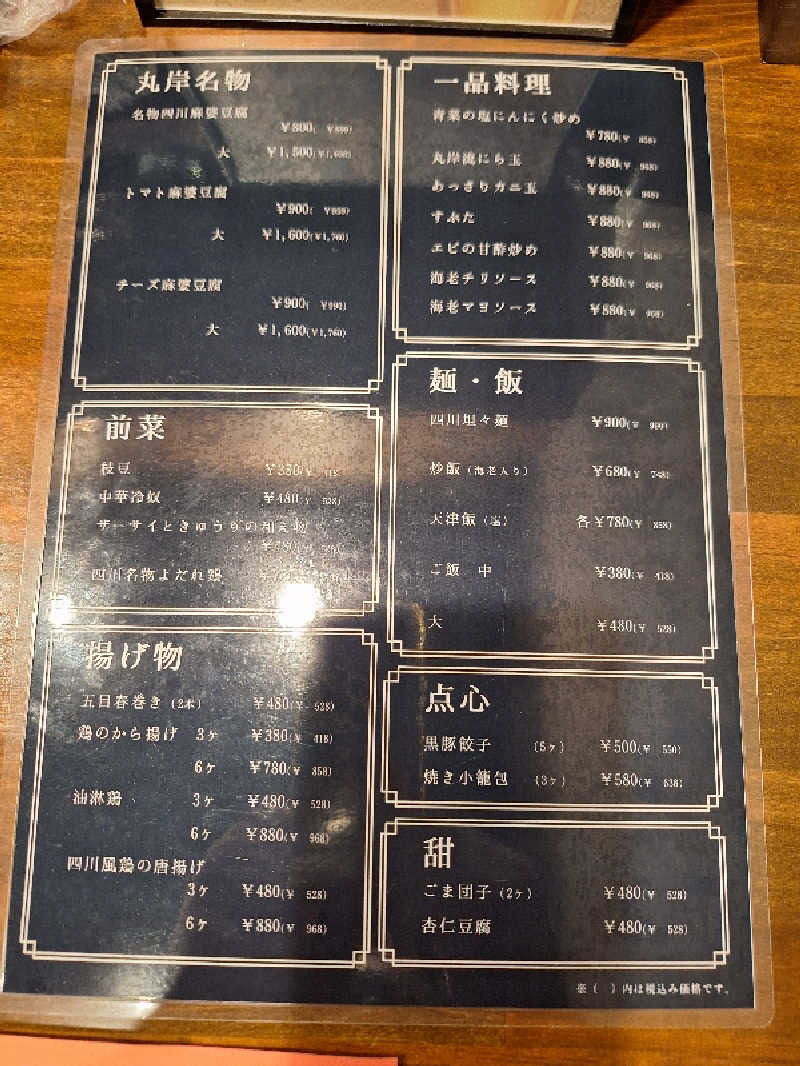 丸岸名物
名物四川麻婆豆腐
¥800( ¥880)
大 ¥1,500(¥1,650)
トマト麻婆豆腐
¥900( ¥990)
大 ¥1,600(¥1,760)
チーズ麻婆豆腐
¥900( ¥990)
大 ¥1,600(¥1,760)
前菜
枝豆 ¥380(¥ 418)
中華冷奴 ¥480(¥ 528)
ザーサイときゅうりの和え物
¥480(¥ 528)
四川名物よだれ鶏
揚げ物
五目春巻き(2本) ¥480(¥ 528)
鶏のから揚げ 3ヶ ¥380(¥ 418)
6ヶ ¥780(¥ 858)
油淋鶏 3ヶ ¥480(¥ 528)
6ヶ ¥880(¥ 968)
四川風鶏の唐揚げ
3ヶ ¥480(¥ 528)
6ヶ ¥880(¥ 968)
一品料理
青菜の塩にんにく炒め
¥780(¥ 858)
丸岸流にら玉 ¥880(¥ 968)
あっさりカニ玉 ¥880(¥ 968)
すぶた ¥880(¥ 968)
エビの甘酢炒め ¥880(¥ 968)
海老チリソース ¥880(¥ 968)
海老マヨソース ¥880(¥ 968)
麺・飯
四川坦々麺 ¥900(¥ 990)
炒飯(海老入り) ¥680(¥ 748)
天津飯(塩) 各¥780(¥ 858)
ご飯 中 ¥380(¥ 418)
大 ¥480(¥ 528)
点心
黒豚餃子 (5ヶ) ¥500(¥ 550)
焼き小籠包 (3ヶ) ¥580(¥ 638)
甜
ごま団子(2ヶ) ¥480(¥ 528)
杏仁豆腐 ¥480(¥ 528)
※( )内は税込み価格です。